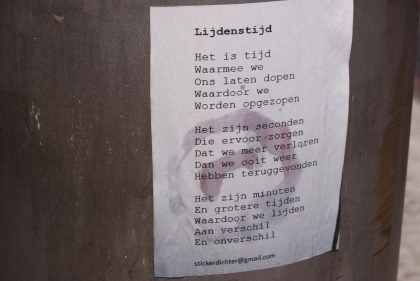 Lijdenstijd
Het is tijd
Waarmee we
Ons laten dopen
Waardoor we
Worden opgezopen
Het zijn seconden
Die ervoor zorgen
Dat we meer verloren
Dan we ooit weer
Hebben teruggevonden
Het zijn minuten
En grotere tijden
Waardoor we lijden
Aan verschil
En onverschil
stickerdichter@gmail.com